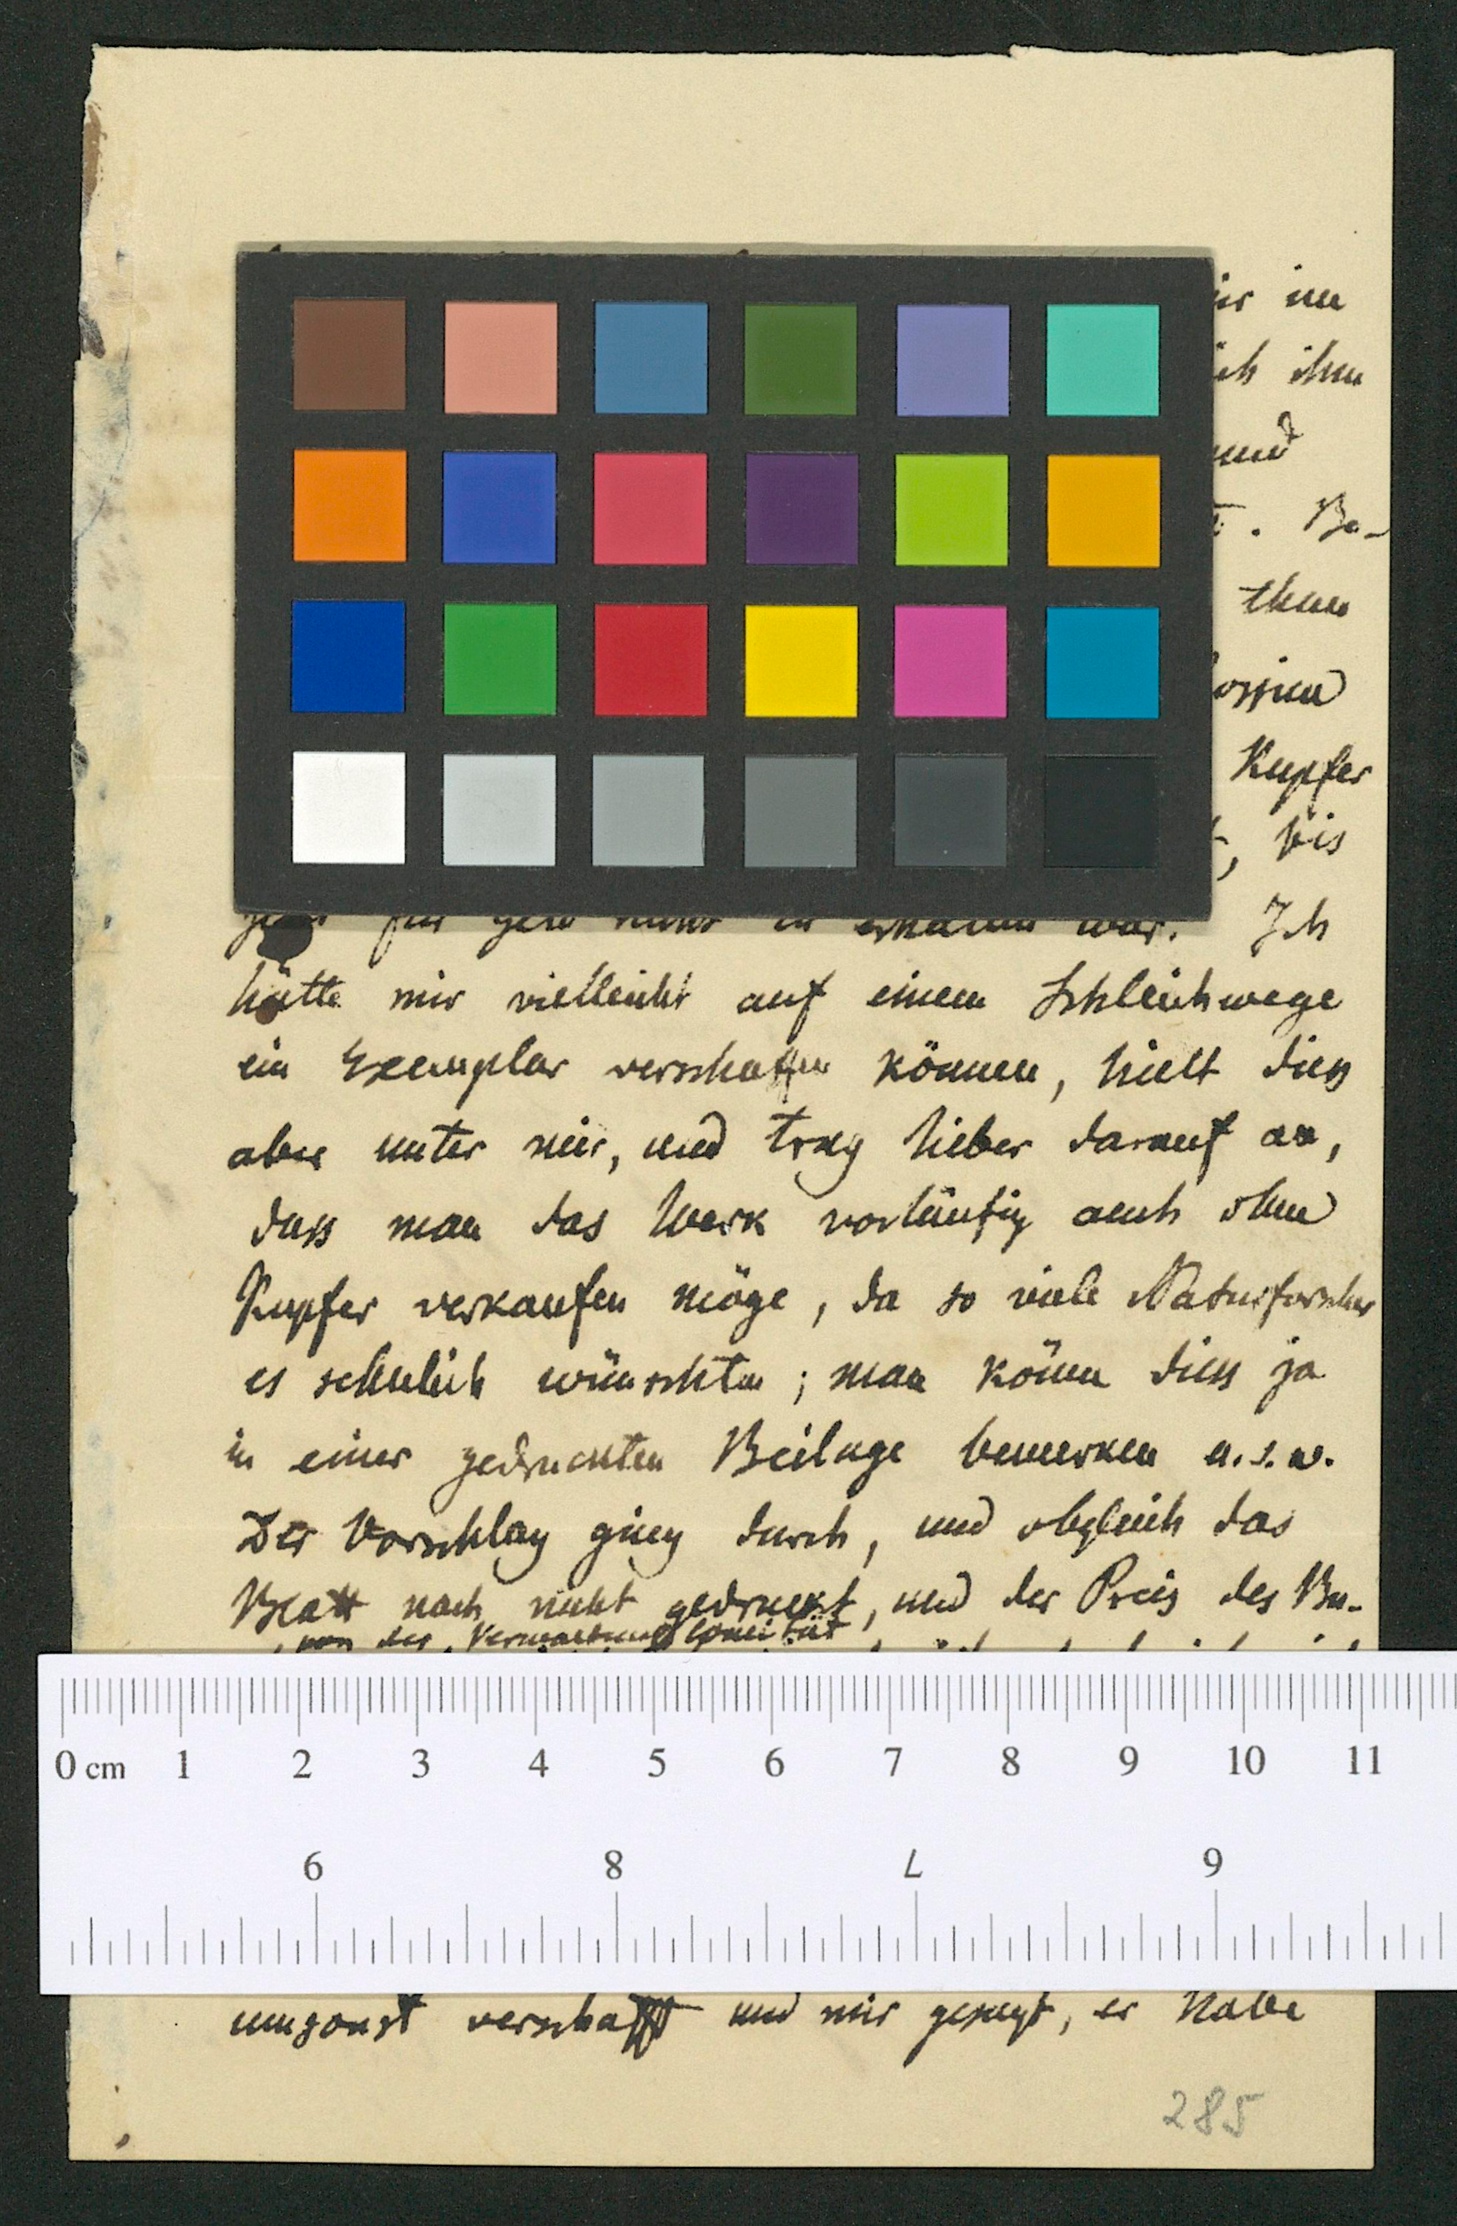 im
ich ihm
und
. Be-
thun
Kupfer
, bis
für Geld nicht zu erhalten war. Ich
hätte mir vielleicht auf einem Schleichwege
ein Exemplar verschaffen können, hielt diess
aber unter mir, und trug lieber darauf an,
dass man das Werk vorläufig auch ohne
Kupfer verkaufen möge, da so viele Naturforscher
es sehnlich wünschten; man könne diess ja
in einer gedruckten Beilage bemerken u.s.w.
Der Vorschlag ging durch, und obgleich das
Blatt noch nicht gedruckt, und der Preis des Bu-
von der Verwaltungs Comität
0 cm 1 2 3 4 5 6 7 8 9 10 11
6 8 L 9
umsonst verschafft und mir gesagt, er habe
285